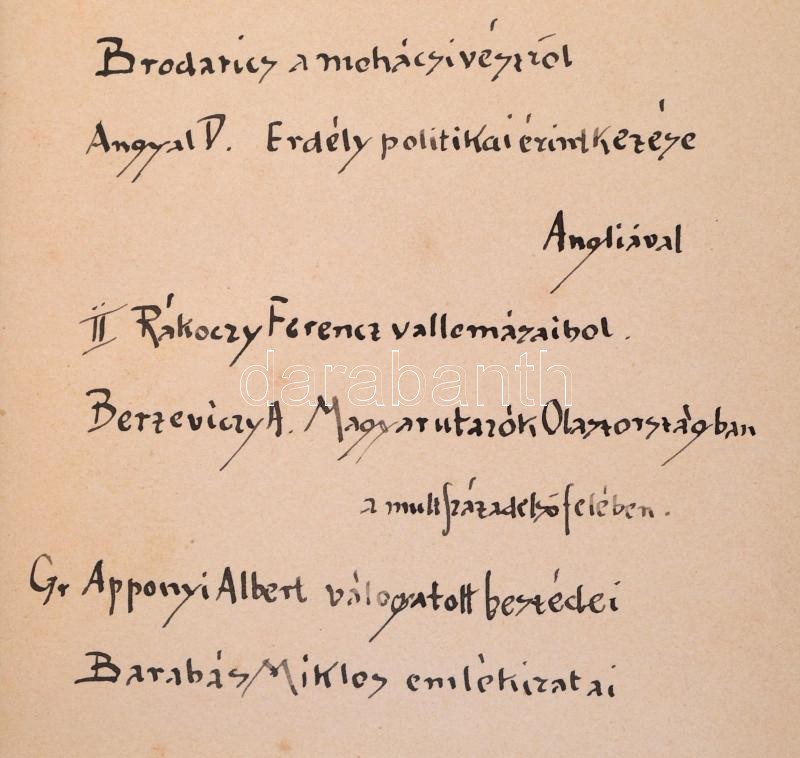 Brodarics a mohácsi vészről
Angyal D. Erdély politikai érintkezése
Angliával
II Rákoczy Ferencz vallomásaibol.
darabanth
Berzeviczy A. Magyar utazók Olaszországban
a mult század első felében.
Gr Apponyi Albert válogatott beszédei
Barabás Miklos emlékiratai